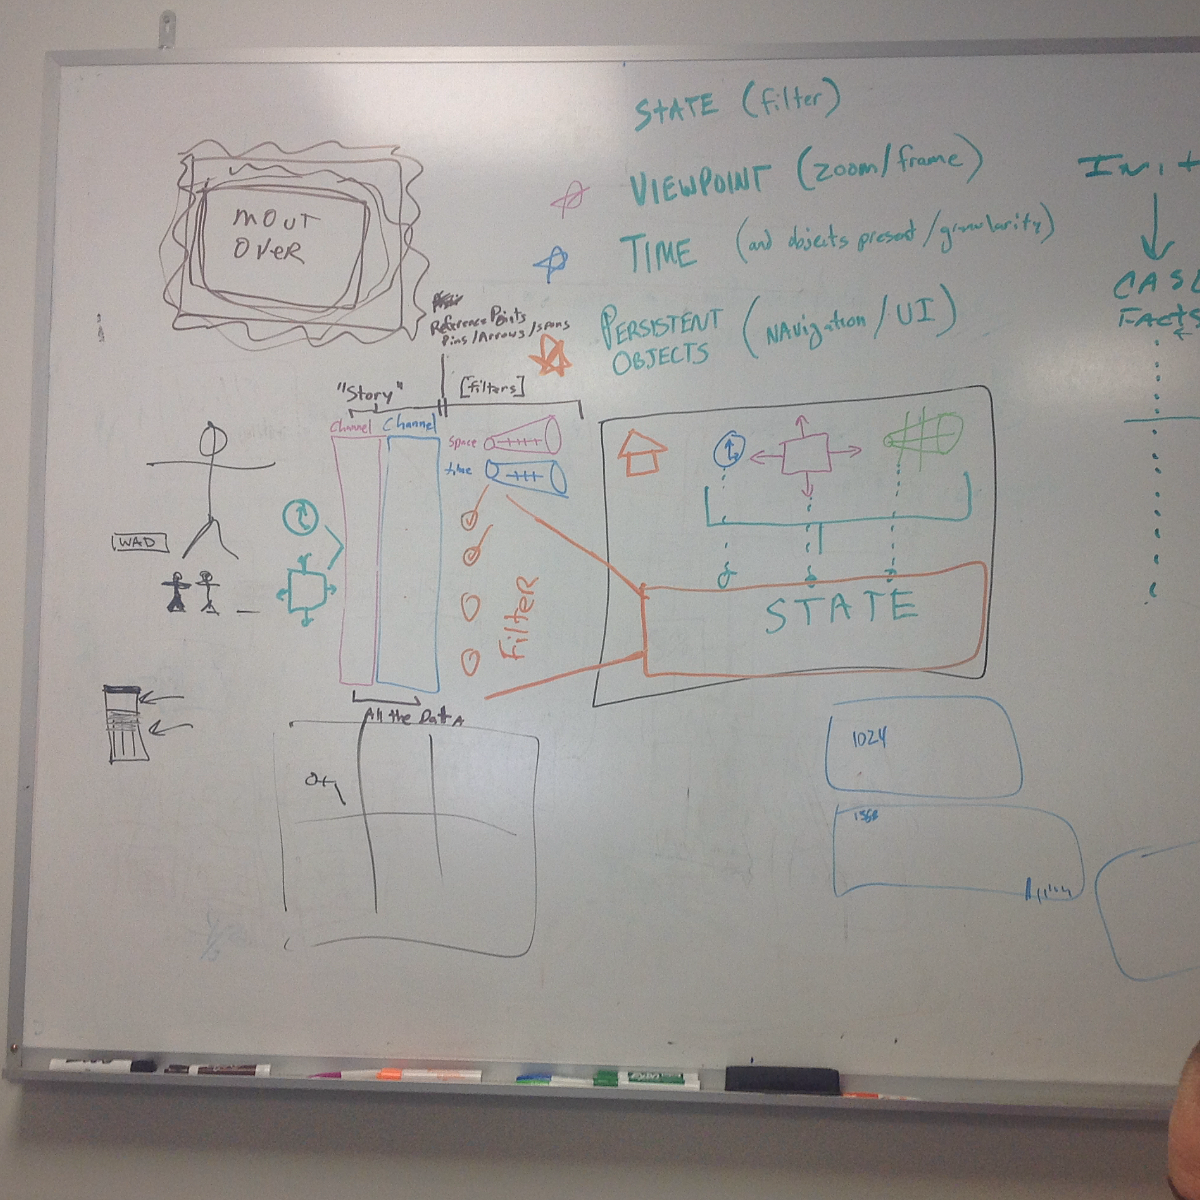 STATE (filter)
VIEWPOINT (zoom/frame)
TIME (and objects present/granularity)
PERSISTENT OBJECTS (NAvigation/UI)
Init
CASE
FActs
MOUT
OVER
Reference Points
Pins/Arrows/spans
"Story"
[filters]
Channel
Channel
Space
time
WAD
Filter
STATE
All the DatA
1024